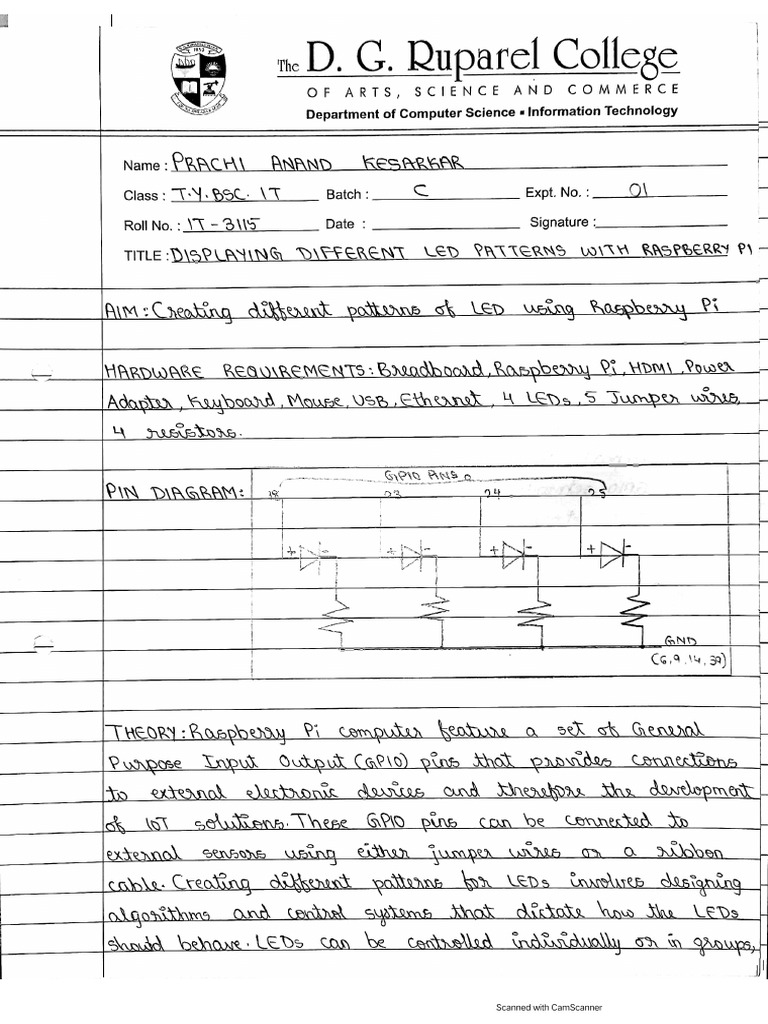 The D. G. Ruparel College
OF ARTS, SCIENCE AND COMMERCE
Department of Computer Science ▪ Information Technology
Name : PRACHI ANAND KESARKAR
Class : T.Y.BSC. IT Batch : C Expt. No. : 01
Roll No. : IT - 3115 Date : Signature :
TITLE : DISPLAYING DIFFERENT LED PATTERNS WITH RASPBERRY PI
AIM: Creating different patterns of LED using Raspberry Pi
HARDWARE REQUIREMENTS: Breadboard, Raspberry Pi, HDMI, Power
Adapter, Keyboard, Mouse, USB, Ethernet, 4 LEDs, 5 Jumper wires,
4 resistors.
PIN DIAGRAM:
GPIO PINS
18 23 24 25
+ - + - + - + -
GND
(6,9,14,39)
THEORY: Raspberry Pi computer feature a set of General
Purpose Input Output (GPIO) pins that provides connections
to external electronic devices and therefore the development
of IOT solutions. These GPIO pins can be connected to
external sensors using either jumper wires or a ribbon
cable. Creating different patterns for LEDs involves designing
algorithms and control systems that dictate how the LEDs
should behave. LEDs can be controlled individually or in groups,
Scanned with CamScanner